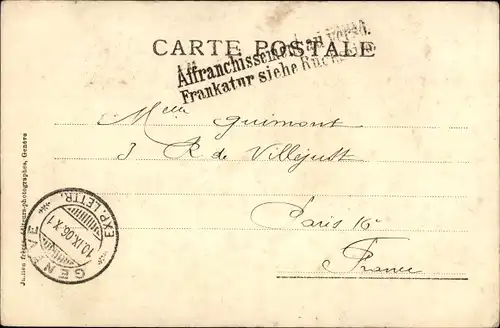 CARTE POSTALE
Affranchissement au verso.
Frankatur siehe Rücks
Melle Guimont
3 R de Villejust
Paris 16e
France
GENÈVE
EXP. LETTR.
10.IX.06.X 1
Jullien frères, éditeurs-photographes, Genève